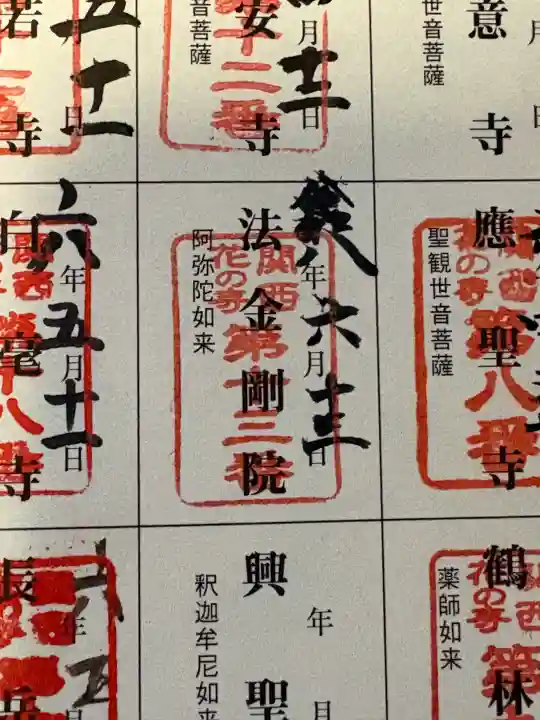 意寺
世音菩薩
月
日
安寺
音菩薩
十二番
月十二日
若寺
五月十一日
應聖寺
聖観世音菩薩
関西
花の寺
第八番
法金剛院
阿弥陀如来
関西
花の寺
第十三番
八年六月十三日
白毫寺
関西
第十八番
六年五月十一日
鶴林
薬師如来
関西
花の寺
第
興聖
釈迦牟尼如来
年
月
長岳
年
月